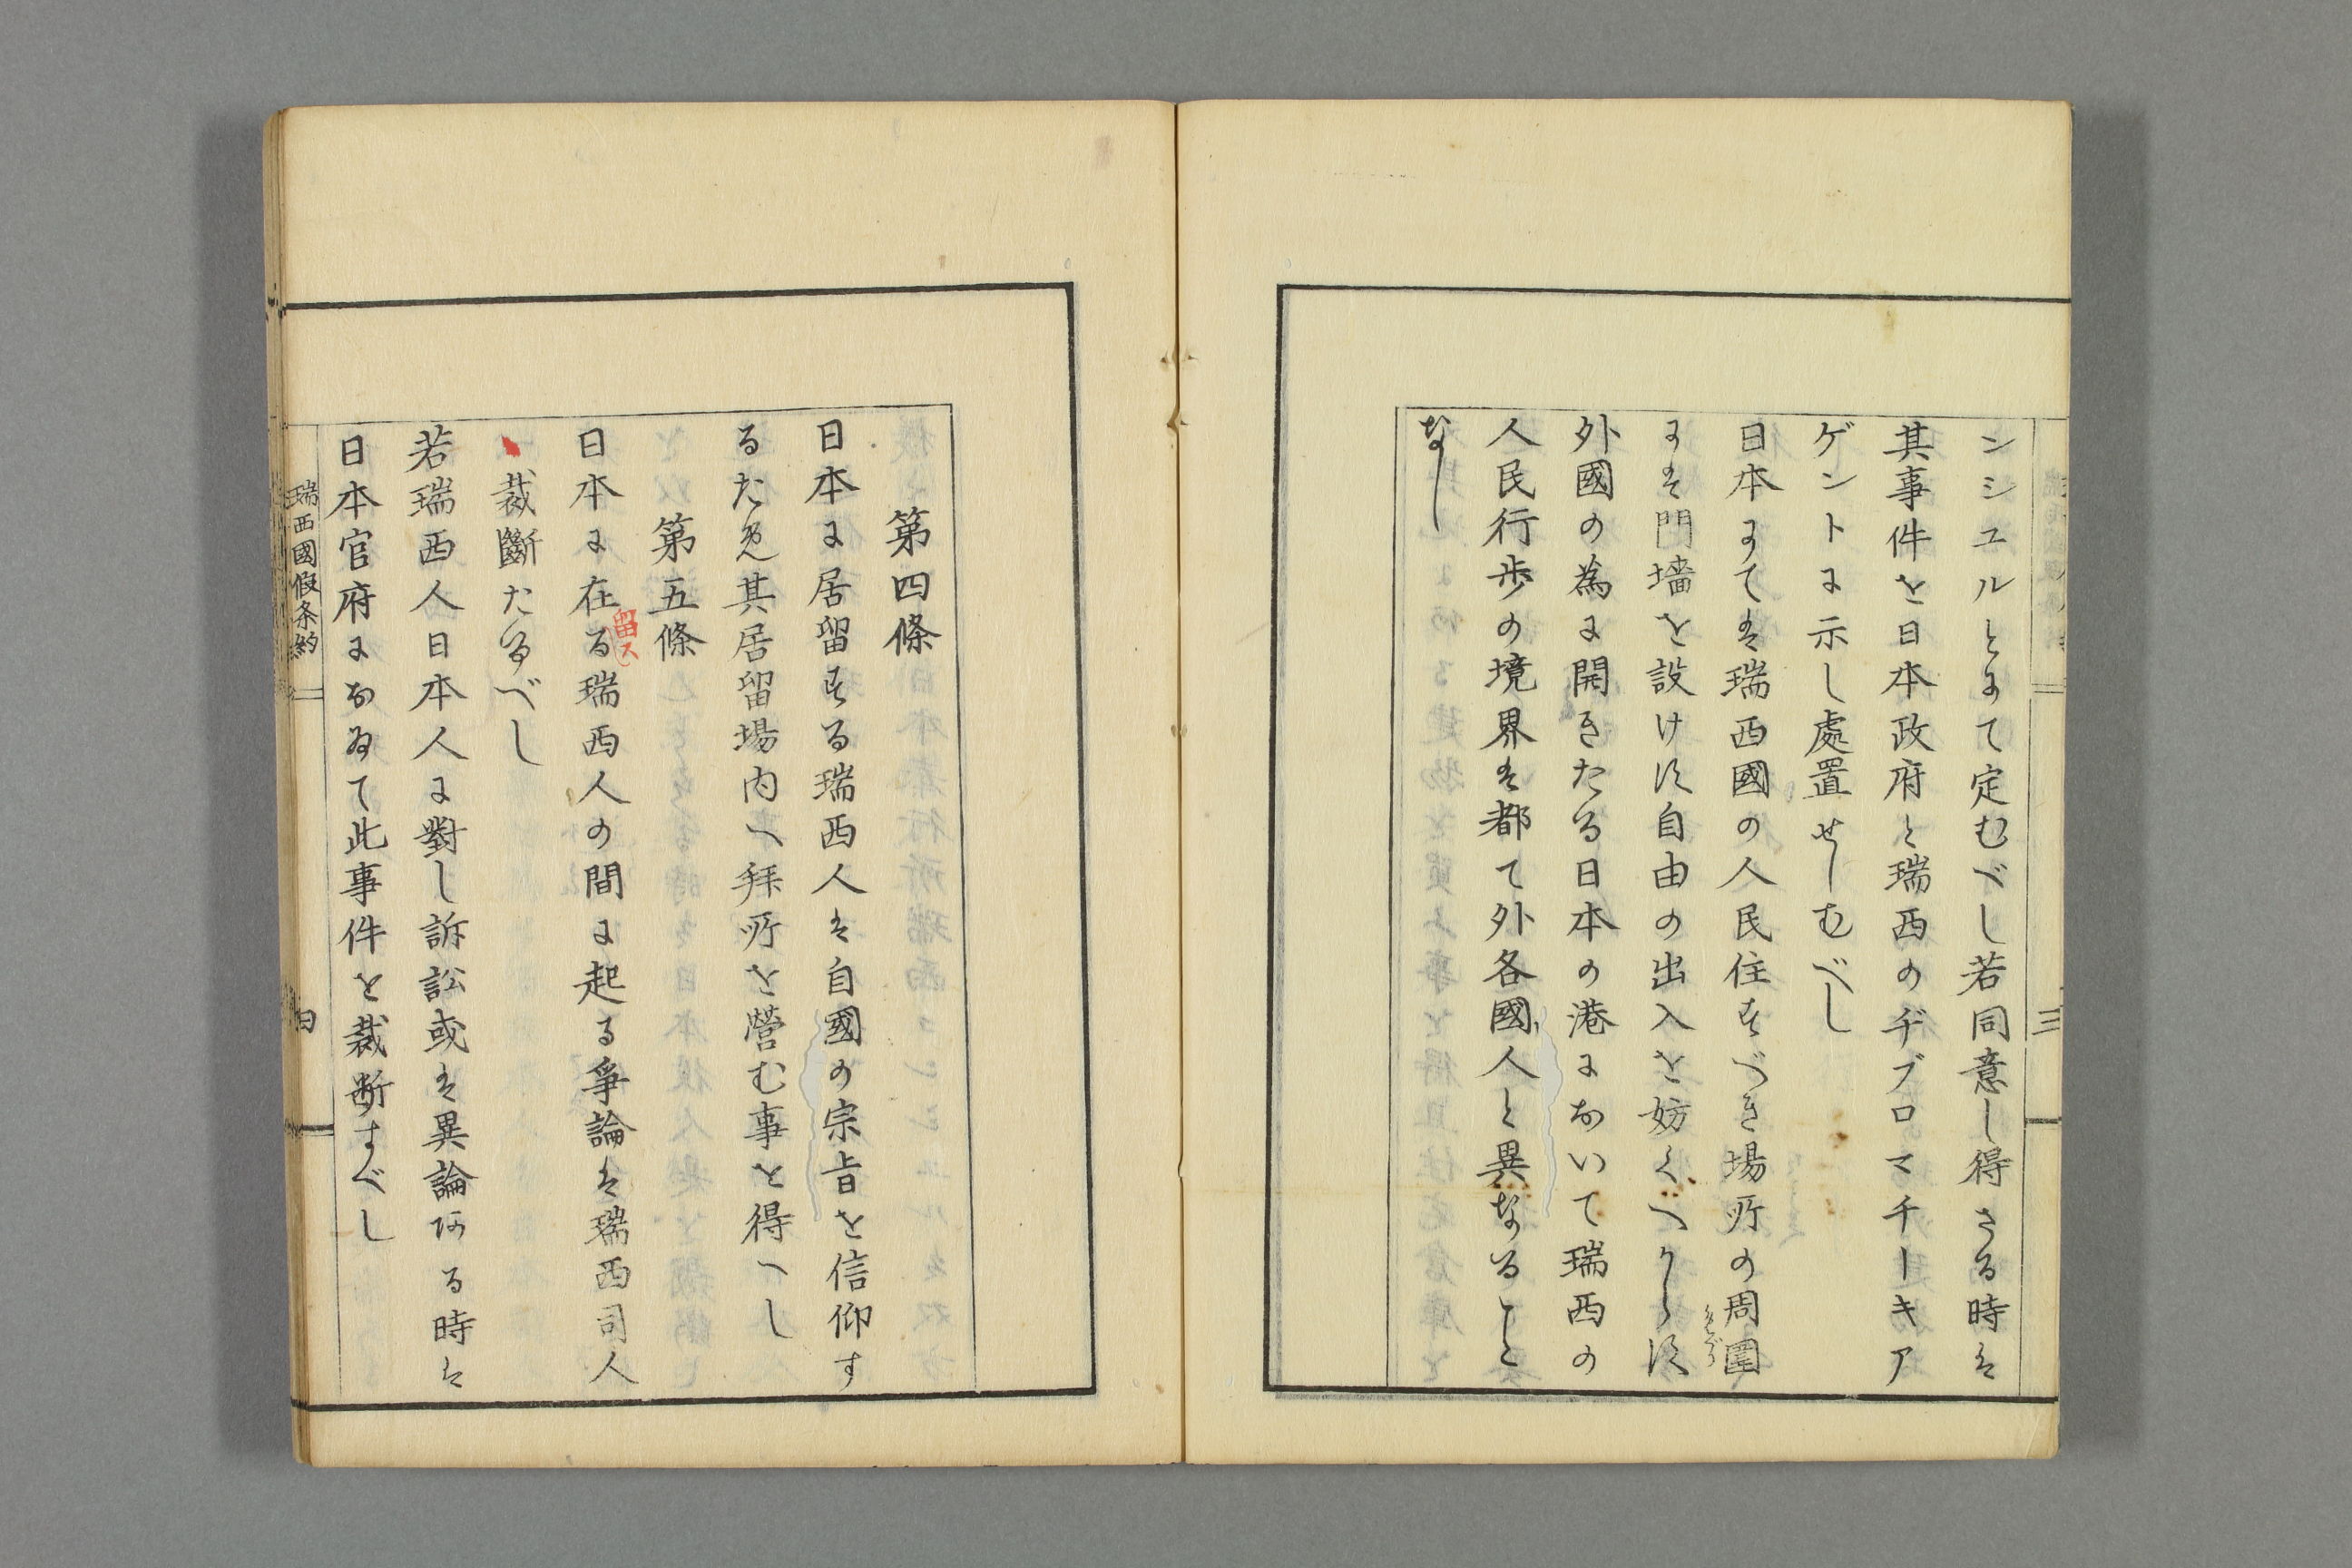 ンシユルとにて定むべし若同意し得さる時は
其事件を日本政府と瑞西のヂプロマチーキア
ゲントに示し處置せしむべし
日本にては瑞西國の人民住すべき場所の周圍
には門墻を設けす自由の出入を妨くへからす
外國の為に開きたる日本の港において瑞西の
人民行歩の境界は都て外各國人と異なること
なし
三
第四條
日本に居留する瑞西人は自國の宗旨を信仰す
るため其居留場内へ拜所を營む事を得へし
第五條
日本に在る瑞西人の間に起る爭論は瑞西司人
留ス
裁斷たるべし
若瑞西人日本人に對し訴訟或は異論ある時は
日本官府におゐて此事件を裁断すべし
瑞西國假条約
四